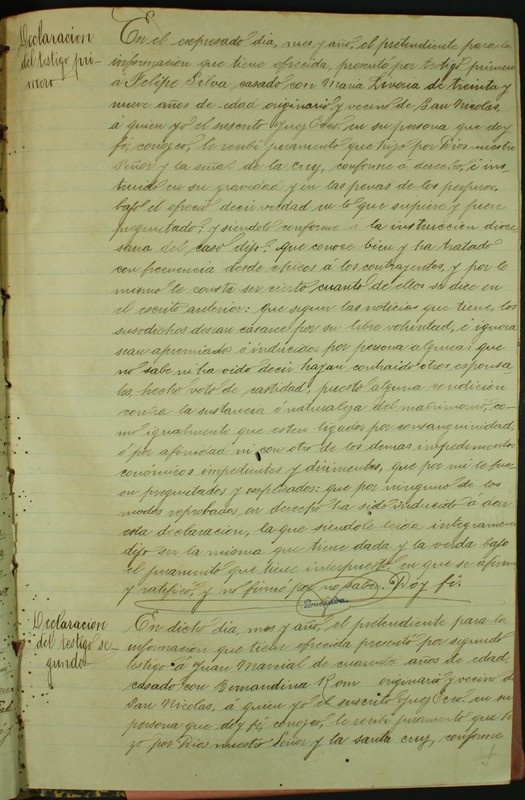 Declaracion
del testigo pri
mero
En el expresado dia, mes y año, el pretendiente para la
informacion que tiene ofrecida, presentó por testigo primero
á Felipe Silva casado con Maria de treinta y
nueve años de edad originario y vecino de San Nicolas,
á quien yo el suscrito Juez Ecco. en su persona que doy
fé, conozco, le recibí juramento que hizo por Dios nuestro
Señor y la señal de la Cruz, conforme á derecho, é ins-
truido en su gravedad y en las penas de los perjuros,
bajo el ofreció decir verdad en lo que supiere y fuere
preguntado; y siendolo conforme a la instruccion dioce
sana del caso dijo: Que conoce bien y ha tratado
con frecuencia desde chicos á los contrayentes, y por lo
mismo le consta ser cierto cuanto de ellos se dice en
el escrito anterior: que segun las noticias que tiene, los
susodichos desean casarce por su libre voluntad, é ignora
sean apremiados ó inducidos por persona alguna: que
no sabe ni ha oido decir hayan contraido otros esponsa
les, hecho voto de castidad, puesto alguna condicion
contra la sustancia ó naturaleza del matrimonio, co-
mo igualmente que esten ligados por consanguinidad,
ó por afinidad ni con otro de los demas impedimentos
canónicos impedientes y dirimentes, que por mi le fue
on preguitados y esplicados: que por ninguno de los
modos reprobados en derecho ha sido inducido á dar
esta declaracion, la que siendole leida integramen
dijo ser la misma que tiene dada y la verda bajo
el juramento que tiene interpuesto en que se afirmó
y ratificó, y no firmó por no saber. Doy fé.
Declaracion
del testigo se-
gundo
En dicto dia, mes y año, el pretendiente para la
informacion que tiene ofrecida presentó por segundo
testigo á Juan Marcial de cuarenta años de edad,
casado con Bernandina Rom originario y vecino de
San Nicolas, á quien yo el suscrito Juez Ecco. en su
persona que doy fé, conozco, le recibí juramento que hi
zo por Dios nuestro Señor y la santa cruz, conforme